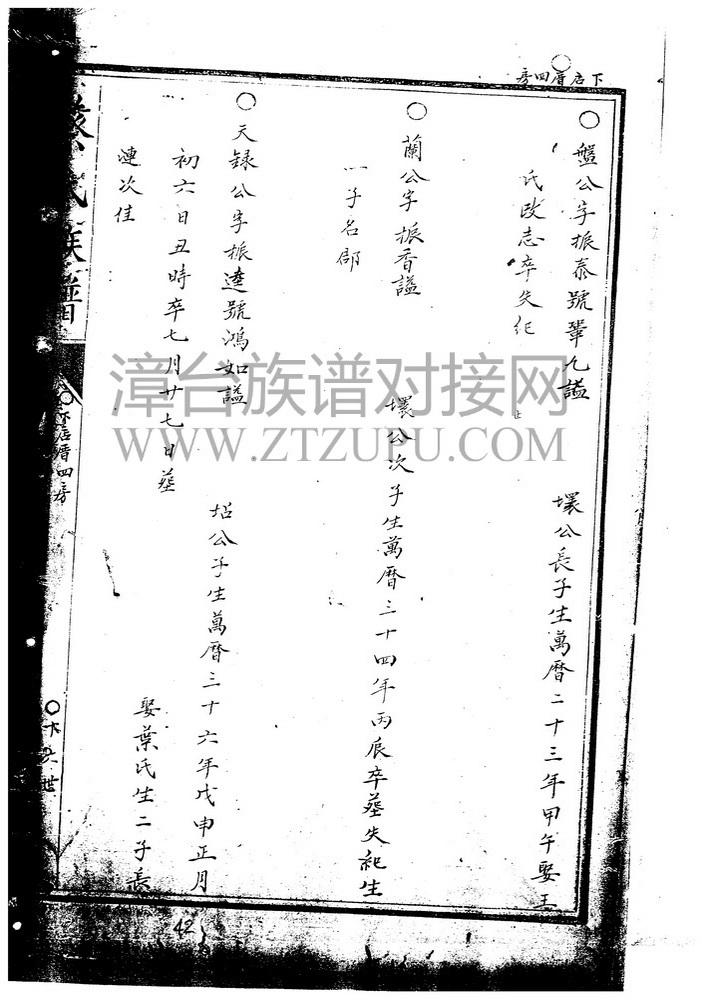 下店厝四房
盤公字振泰號鞏九諡
壞公長子生萬曆二十三年甲午娶王
氏改志卒失紀
蘭公字振香諡
壞公次子生萬曆三十四年丙辰卒葬失紀生
一子名郎
天錄公字振逵號鴻如諡
坫公子生萬曆三十六年戊申正月
初六日丑時卒七月廿七日葬
娶葉氏生二子長
連次佳
氏族譜
下店厝四房
世
42
漳台族谱对接网
WWW.ZTZUPU.COM